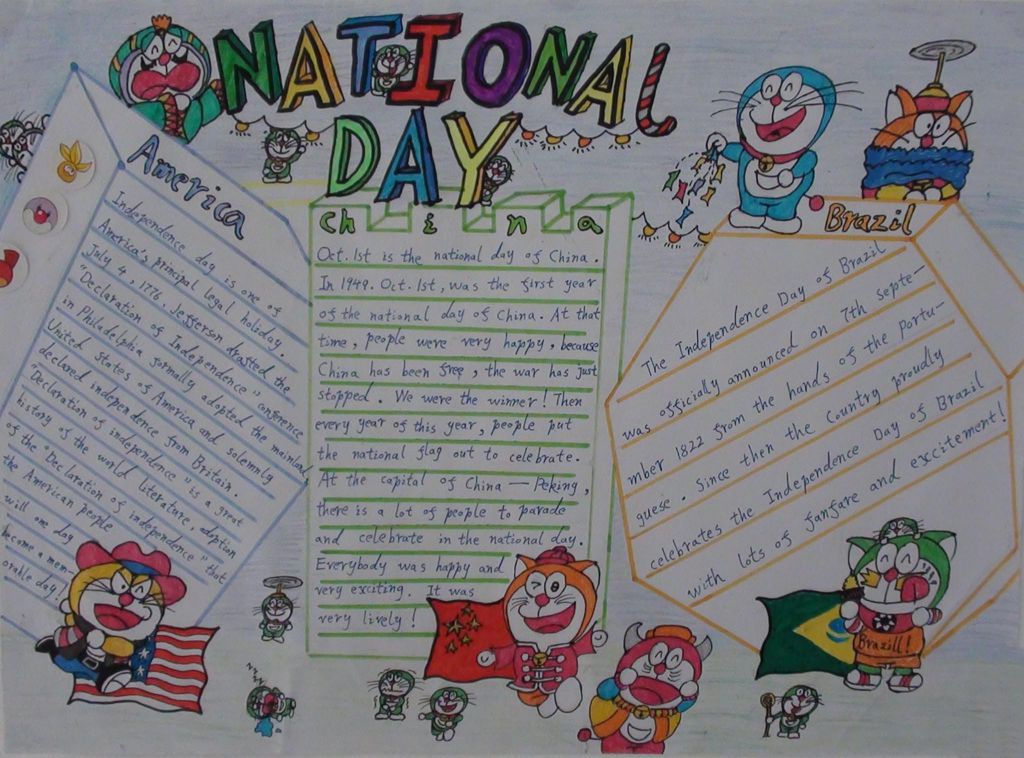 NATIONAL
DAY
America
Independence day is one of
America's principal legal holiday.
July 4, 1776, Jefferson drasfted the
"Declaration of Independence" conference
in Philadelphia formally adopted the mainland
United States of America and solemnly
declared independence from Britain.
"Declaration of independence" is a great
history of the world literature, adoption
of the "Declaration of independence" that
the American people
will one day
become a mem-
orable day!
China
Oct. 1st is the national day of China.
In 1949. Oct. 1st, was the first year
of the national day of China. At that
time, people were very happy, because
China has been free, the war has just
stopped. We were the winner! Then
every year of this year, people put
the national flag out to celebrate.
At the capital of China — Peking,
there is a lot of people to parade
and celebrate in the national day.
Everybody was happy and
very exciting. It was
very lively!
Brazil
The Independence Day of Brazil
was officially announced on 7th Septe-
mber 1822 from the hands of the Portu-
guese. Since then the Country proudly
celebrates the Independence Day of Brazil
with lots of fanfare and excitement!
Brazill!